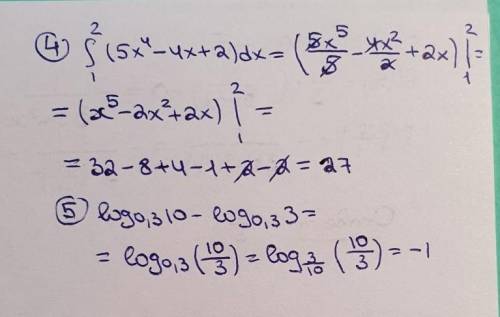 ④ ∫₁² (5x⁴ - 4x + 2)dx = (5x⁵/5 - 4x²/2 + 2x) |₁² =
= (x⁵ - 2x² + 2x) |₁² =
= 32 - 8 + 4 - 1 + 2 - 2 = 27
⑤ log₀,₃10 - log₀,₃3 =
= log₀,₃(10/3) = log_{3/10} (10/3) = -1